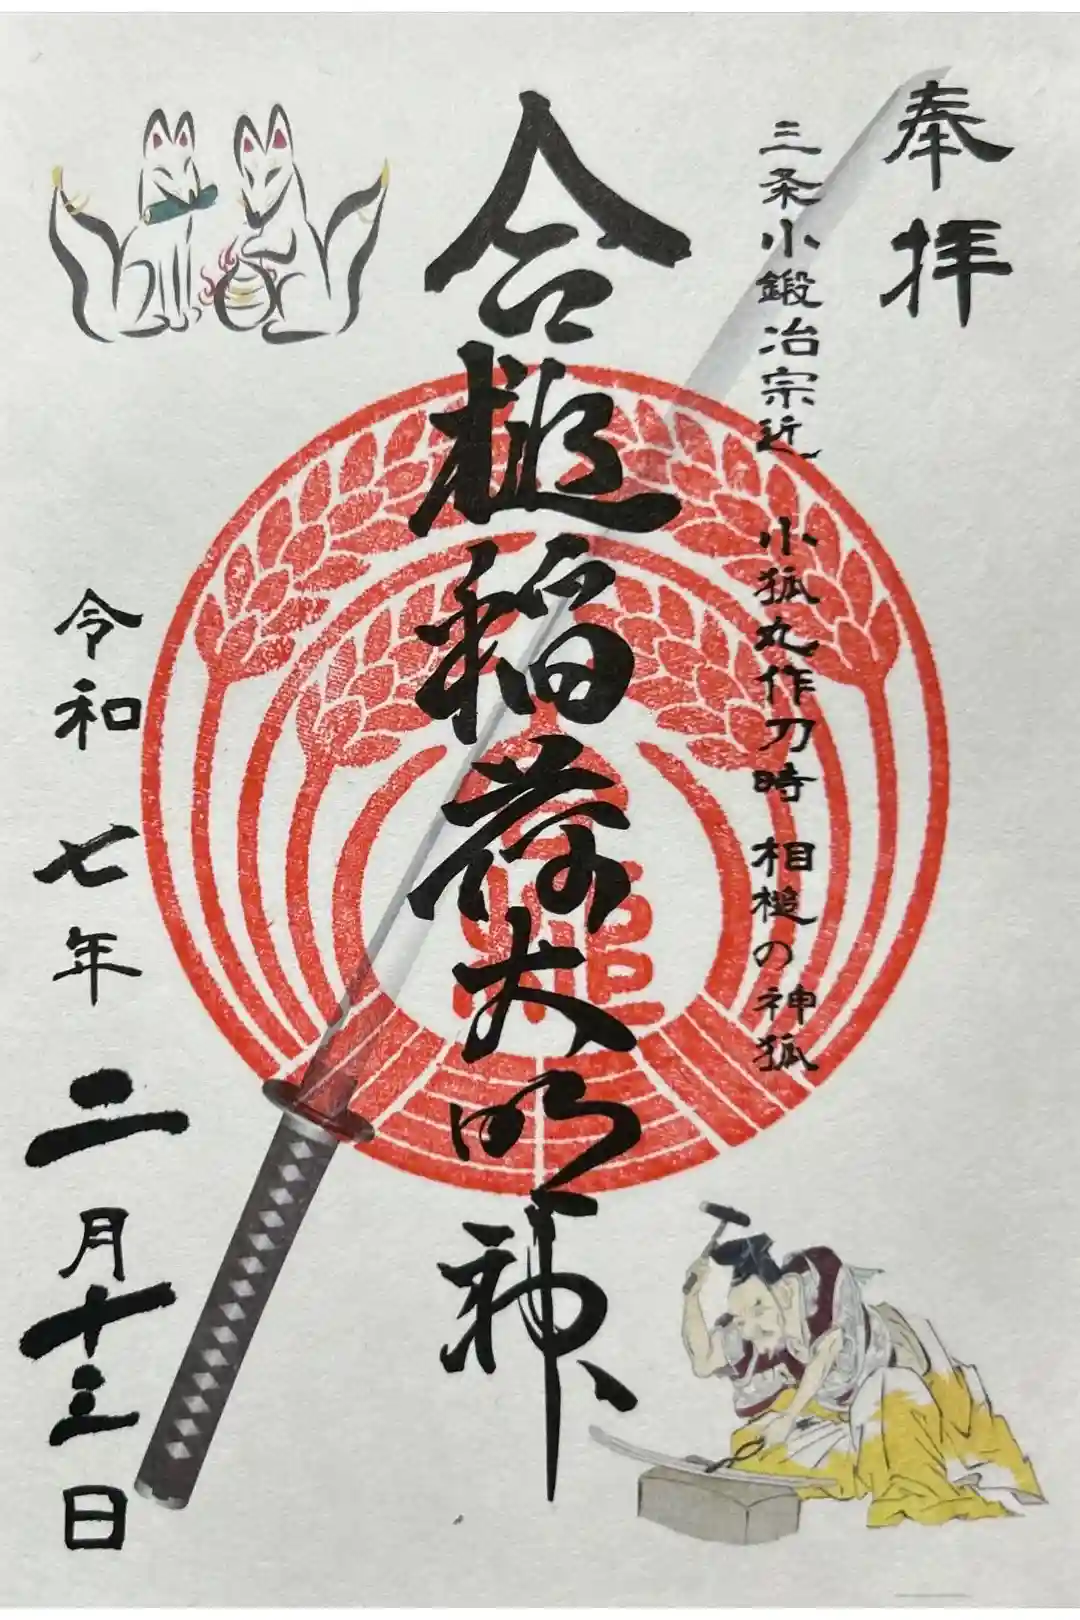 奉拝
三条小鍛冶宗近 小狐丸作刀時 相槌の神狐
合槌稲荷大明神
令和七年二月十三日